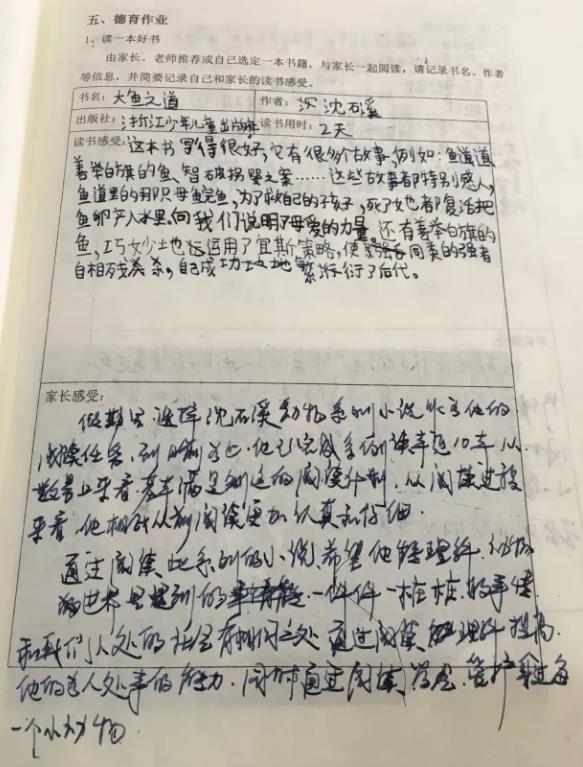 五、德育作业
1、读一本好书
由家长、老师推荐或自己选定一本书籍，与家长一起阅读，请记录书名、作者
等信息，并简要记录自己和家长的读书感受。
书名：大鱼之道 作者：沈石溪
出版社：浙江少年儿童出版社 读书用时：2天
读书感受：这本书写得很好，它有很多个故事，例如：鱼道道、
善举白旗的鱼、智破拐婴之案……这些故事都特别感人，
鱼道里的那只母鲑鱼，为了救自己的孩子，死了也都复活把
鱼卵产入水里，向我们说明了母爱的力量。还有善举白旗的
鱼，巧妙地运用了宜斯策略，使强者同类的强者
自相残杀，自己成功地繁衍了后代。
家长感受：
假期里，选择沈石溪动物系列小说作为他的
阅读任务，到目前为止，他已完成系列读本近10本，从
数量上来看，基本满足制定的阅读计划，从阅读过程
来看，他相比从前阅读更加认真和仔细。
通过阅读此系列的小说，希望他能理解，动物
的世界里遇到的一件件一桩桩的事情
和我们人处的社会有相同之处，通过阅读理解提高
他的为人处事的能力，同时通过阅读，爱护身边每
一个小动物